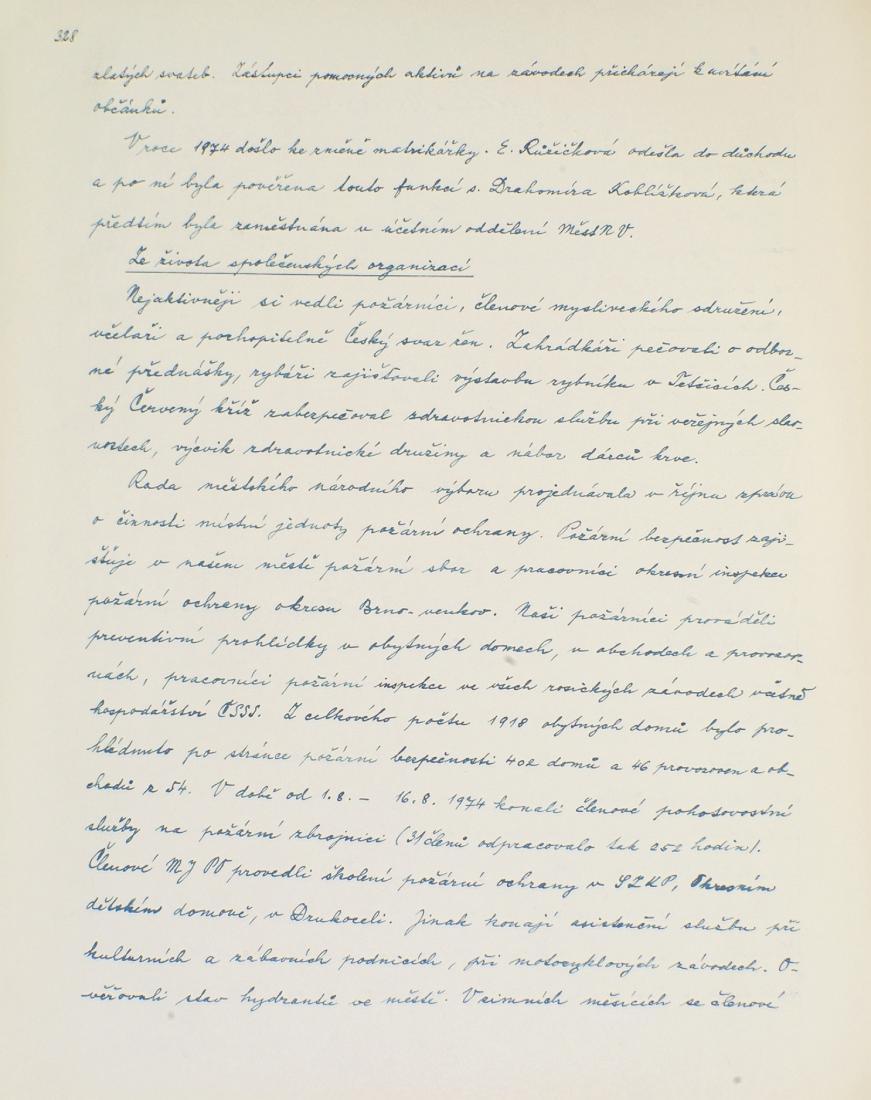 328
zlatých svateb. Zástupci pomocných aktivů na závodech přicházejí k uvítání
občánků.
V roce 1974 došlo ke změně matrikářky. E. Růžičková odešla do důchodu
a po ní byla pověřena touto funkcí s. Drahomíra Koblížková, která
předtím byla zaměstnána v účetním oddělení MěstNV.
Ze života společenských organizací
Nejaktivněji si vedli požárníci, členové mysliveckého sdružení,
včelaři a pochopitelně Český svaz žen. Zahrádkáři pečovali o odbor-
né přednášky, rybáři zajišťovali výstavbu rybníku v Tetčicích. Čes-
ký Červený kříž zabezpečoval zdravotnickou službu při veřejných slav-
nostech, výcvik zdravotnické družiny a nábor dárců krve.
Rada městského národního výboru projednávala v říjnu zprávu
o činnosti místní jednoty požární ochrany. Požární bezpečnost zaji-
šťuje v našem městě požární sbor a pracovníci okresní inspekce
požární ochrany okresu Brno-venkov. Naši požárníci prováděli
preventivní prohlídky v obytných domech, v obchodech a provozov-
nách, pracovníci požární inspekce ve všech rosických závodech včetně
hospodářství ČSSS. Z celkového počtu 1918 obytných domů bylo pro-
hlédnuto po stránce požární bezpečnosti 402 domů a 46 provozoven a ob-
chodů z 54. V době od 1.8. – 16.8. 1974 konali členové pohotovostní
služby na požární zbrojnici (31 členů odpracovalo tak 252 hodin).
Členové MJ PO provedli školení požární ochrany v SZKP, Okresním
dětském domově, v Drukoceli. Jinak konají asistenční službu při
kulturních a zábavních podnicích, při motocyklových závodech. O-
věřovali stav hydrantů ve městě. V zimních měsících se členové